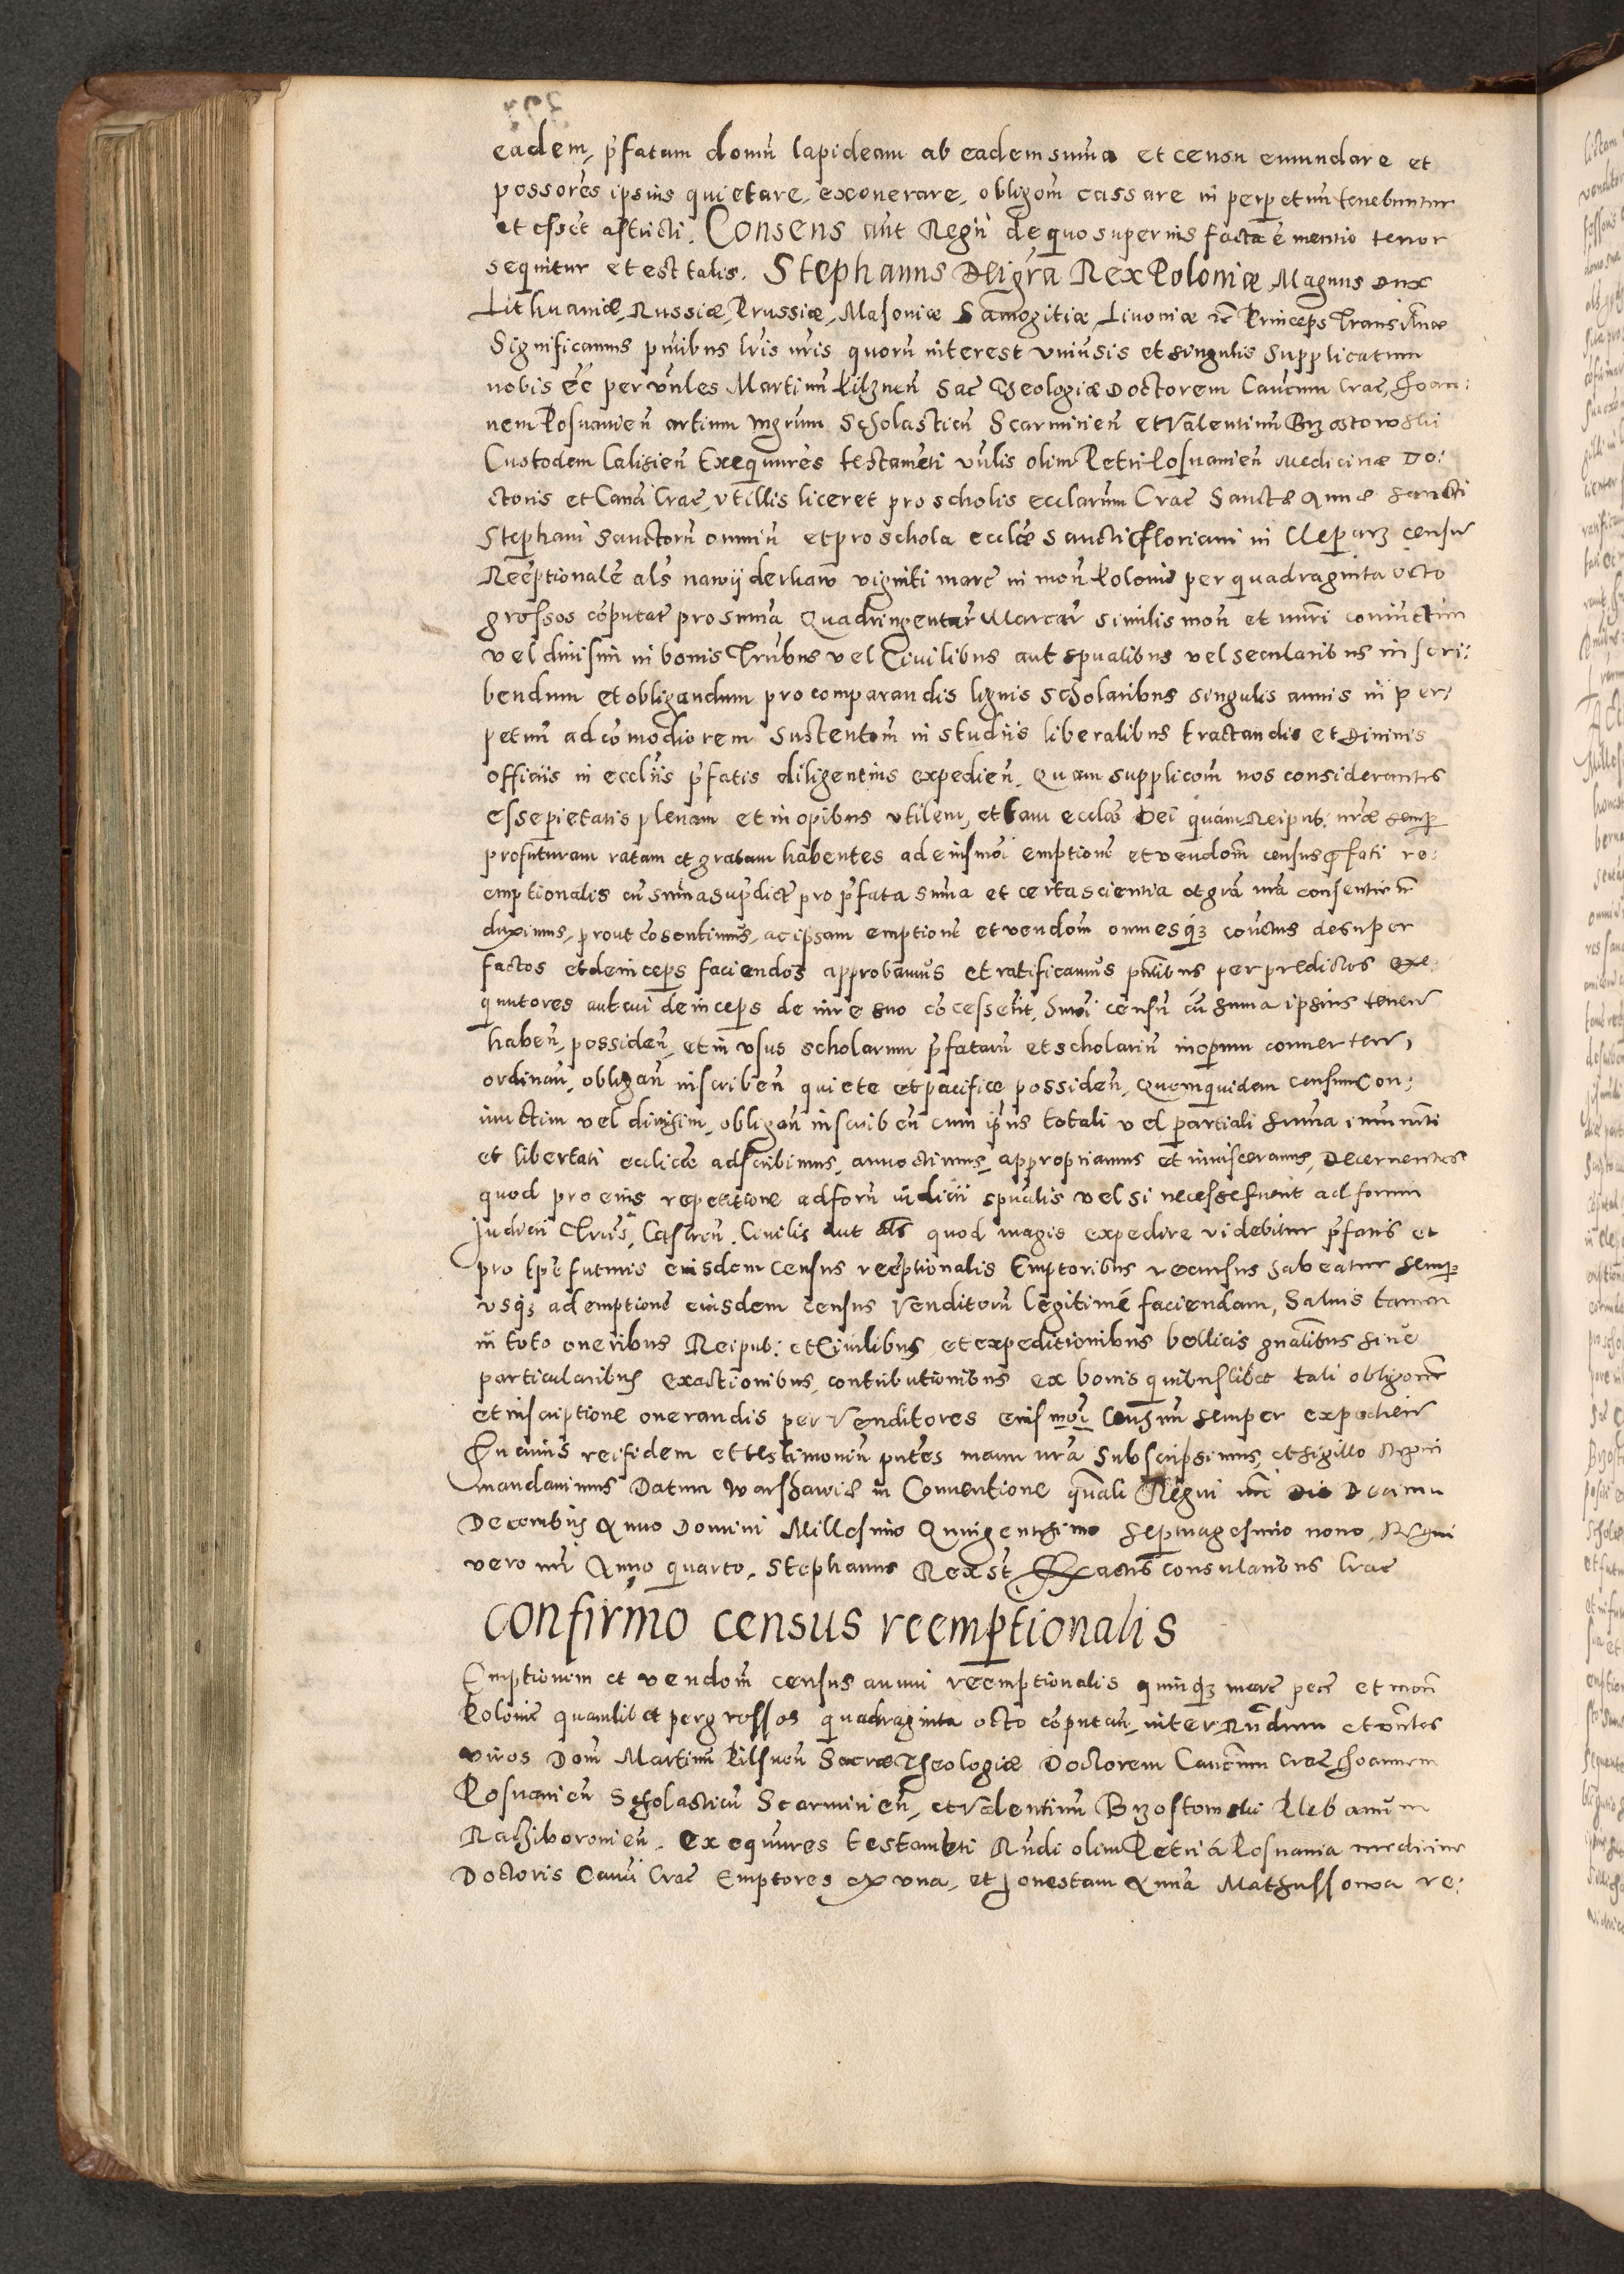 eadem, p̃fatam domũ lapideam ab eadem sum̃a et censu emundare et
possorẽs ipsius quietare, exonerare, obligom̃ cassare in perpetuũ tenebuntur
et essẽt astricti. Consens aũt Regiũ de quo superius facta ẽ mentio tenor
sequitur et est talis. Stephanus Dei gr̃a Rex Poloniæ Magnus Dux
Lithuaniæ, Russiæ, Prussiæ, Masoniæ Samogitiæ, Liuoniæ Princeps Transilṽæ
Significamus pñtibus lr̃is nr̃is quorũ interest vniũsis et singulis supplicatum
nobis eẽ per vñles Martinũ Pilznẽn Sac Theologiæ Doctorem Cañcum Crac, Joan:
nem Posnanień artium mgr̃um Scholasticũ Scarmirień et Valentinũ Brzostowski
Custodem Calisień Exequutorẽs testamẽti vñlis olim Petri Posnanień Medicinæ Do:
ctoris et Canõi Crac, vt illis liceret pro scholis ecclarum Crac Sanctæ Annæ Sancti
Stephani Sanctorũ omniũ et pro schola ecclæ Sancti Floriani in Cleparz censũ
Reẽptionalẽ als nawÿderkaw viginti marc in moñ Polonic per quadraginta octo
grossos cõputat̃ pro sum̃a Quadringentar̃ Marcar̃ similis moñ et nũri coniũctim
vel diuisim in bonis Tr̃ribus vel Ciuilibus aut spũalibus vel secularibus inscri:
bendum et obligandum pro comparandis lignis scholaribus singulis annis in per:
petuũ ad cõmodiorem sustentom̃ in studiis liberalibus tractandis et Diuinis
officiis in eccliis p̃fatis diligentius expedień. Quam supplicom̃ nos considerantes
esse pietatis plenam et in opibus vtilem, et tam ecclæ Dei quàm Reipub. nr̃æ semp
profuturam ratam et gratam habentes ad eiusmõi emptionẽ et vendom̃ census p̃fati re:
emptionalis cũ sum̃a sup̃dict̃ pro p̃fata sum̃a et certa scientia et gr̃a nr̃a consentiend̃
duximus, prout cõsentimus, ac ipsam emptionẽ et vendom̃ omnesq́ʒ cõtractus desuper
factos et deinceps faciendos approbamus et ratificamus pñtibus per predictos exe:
quutores aut cui deinceps de iure suo cõcesserit, hmõi censũ cũ sum̃a ipsius tenen̄
haben̄, possiden̄, et in vsus scholarum p̃fatarũ et scholariũ inopum conuerten̄,
ordinan̄, obligan̄ inscriben̄ quiete et pacifice possiden̄, Quemquidem censum Con:
iunctim vel diuisim, obligan̄ inscriben̄ cum ip̃ius totali vel partiali sum̃a imunit̃i
et libertati ecclicæ adscribimus, annectimus, appropriamus et inuisceramus, Decernentes
quod pro eius repetitione ad forũ iudicii spũalis vel si necesse fuerit ad forum
Judicii Tr̃ris, Castren̄. Ciuilis aut als quod magis expedire videbitur p̃fatis et
pro tpẽ futuris eiusdem census reẽptionalis Emptoribus recursus habeatur semp
vsq́ʒ ad emptionẽ eiusdem census Venditorũ legitimè faciendam, Saluis tamen
in toto oneribus Reipub: et Ciuilibus et expeditionibus bellicis gñalibus siue
particularibus exactionibus, contributionibus ex bonis quibuslibet tali obligom̃e
et inscriptione onerandis per Venditores eiusmõi Censum semper expedien̄
In cuius rei fidem et testimoniũ pñtes manu nr̃a subscripsimus, et sigillo Regni
mandauimus Datum Warschawiæ in Conuentione gñali Regni nr̃i Die Decima
Decembris Anno Domini Millesimo Quingentesimo Septuagesimo nono, Regni
vero nr̃i Anno quarto, Stephanus Rex st̃. Ex actis consularibus Crac
Confirmo census reemptionalis
Emptionem et vendom̃ census annui reemptionalis quinq́ʒ marc pec et moñ
Polonic quamlibet per grossos quadraginta octo cõputan̄, inter Rñdum et
viros Dom̃ Martinũ Pilsnen̄ Sacræ Theologiæ Doctorem Cañcum Crac Joannem
Posnanien̄ Scholasticũ Scarmirien̄, et Valentinũ Brzostowski Plebanum
Rathiboronien̄. Exequutores testamẽti Rñdi olim Petri à Posnania medicinæ
Doctoris Canõi Crac Emptores ex vna, et honestam Annã Mathussowa re: